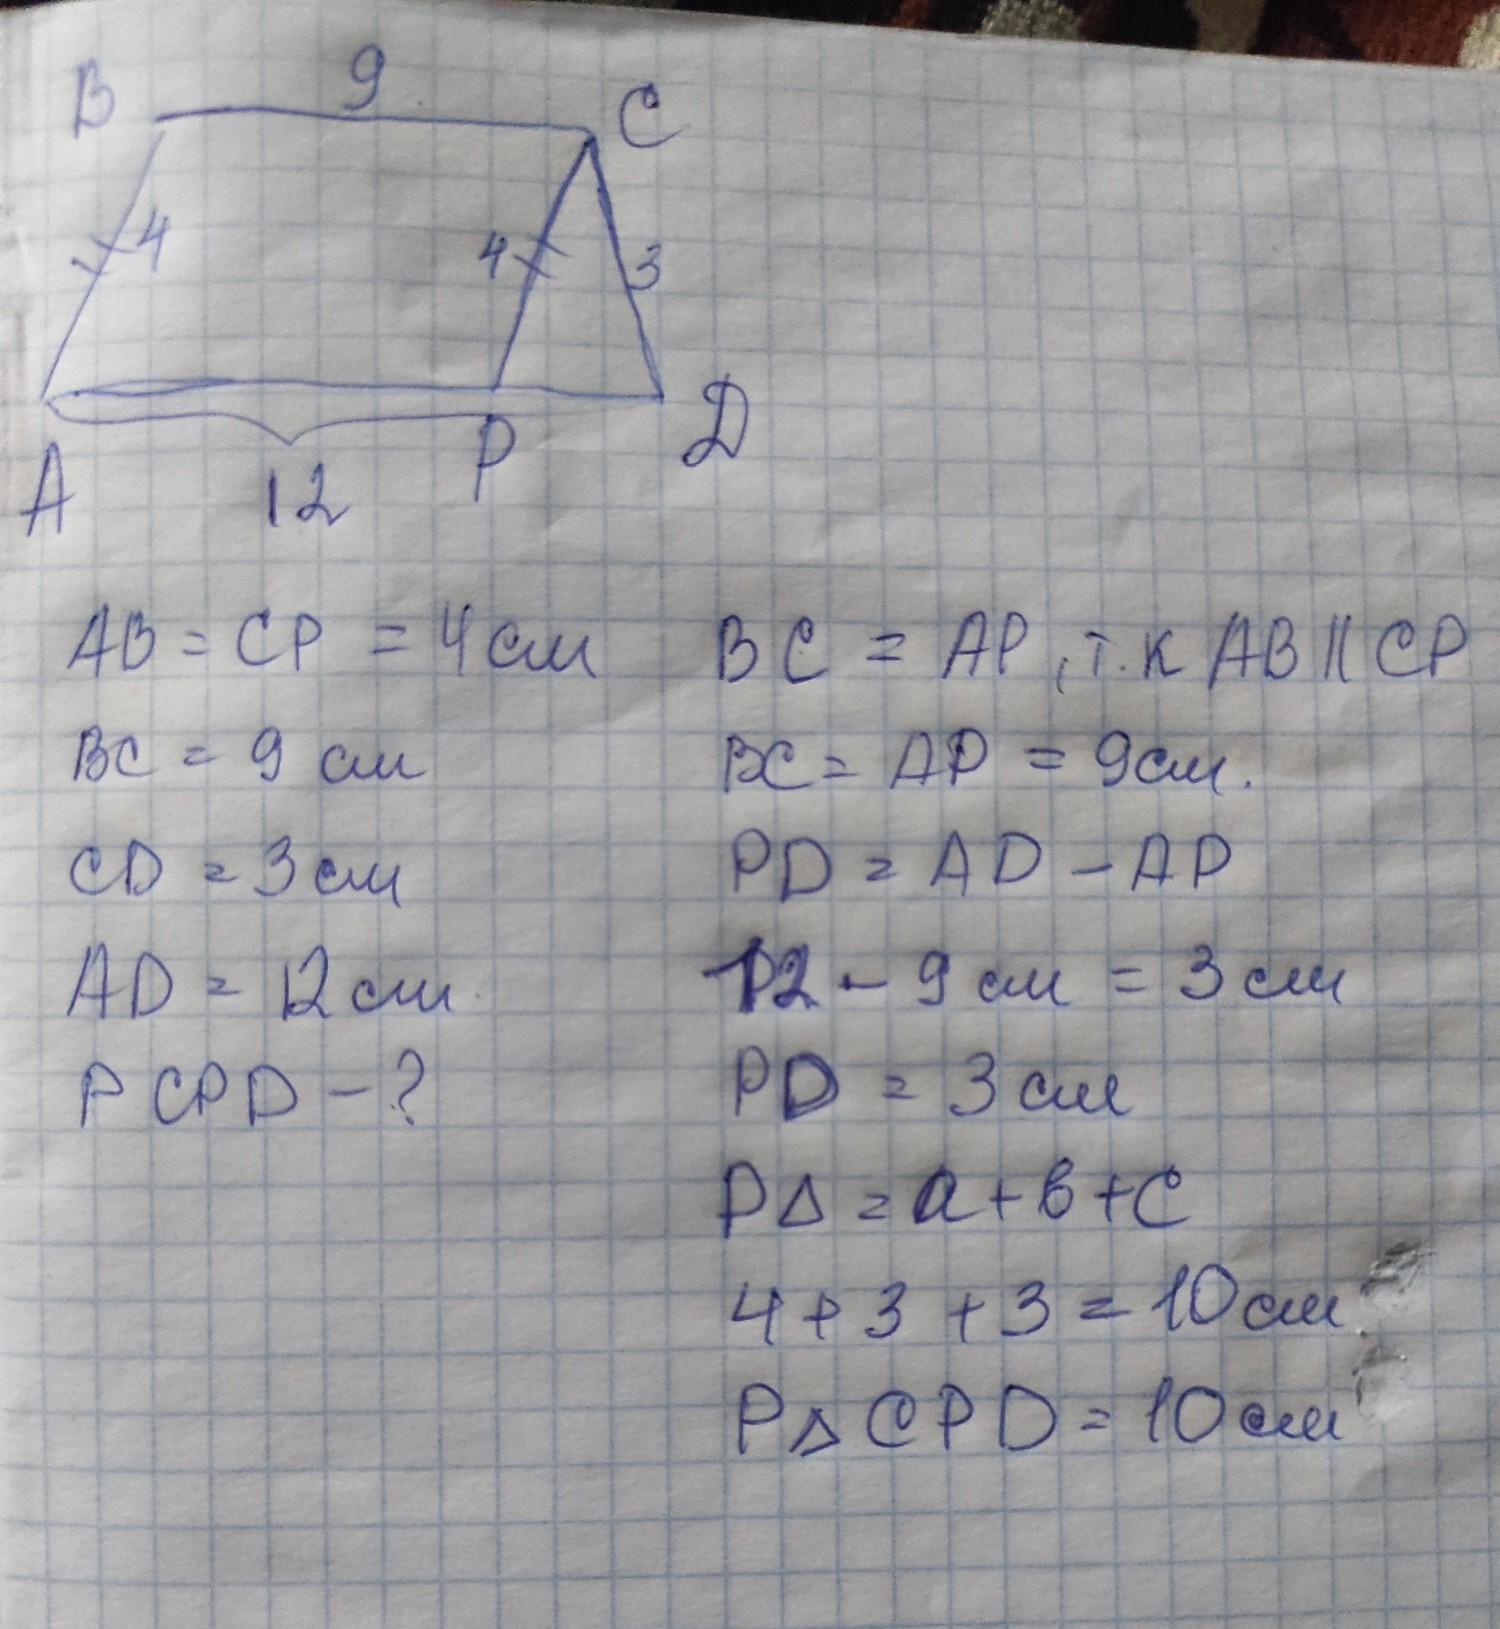 9
B
C
4
4
3
A
12
P
D
AB = CP = 4 см
BC = 9 см
CD = 3 см
AD = 12 см
P CPD - ?
BC = AP, т.к AB || CP
BC = AP = 9 см.
PD = AD - AP
12 - 9 см = 3 см
PD = 3 см
P∆ = a + b + c
4 + 3 + 3 = 10 см
P∆ CPD = 10 см